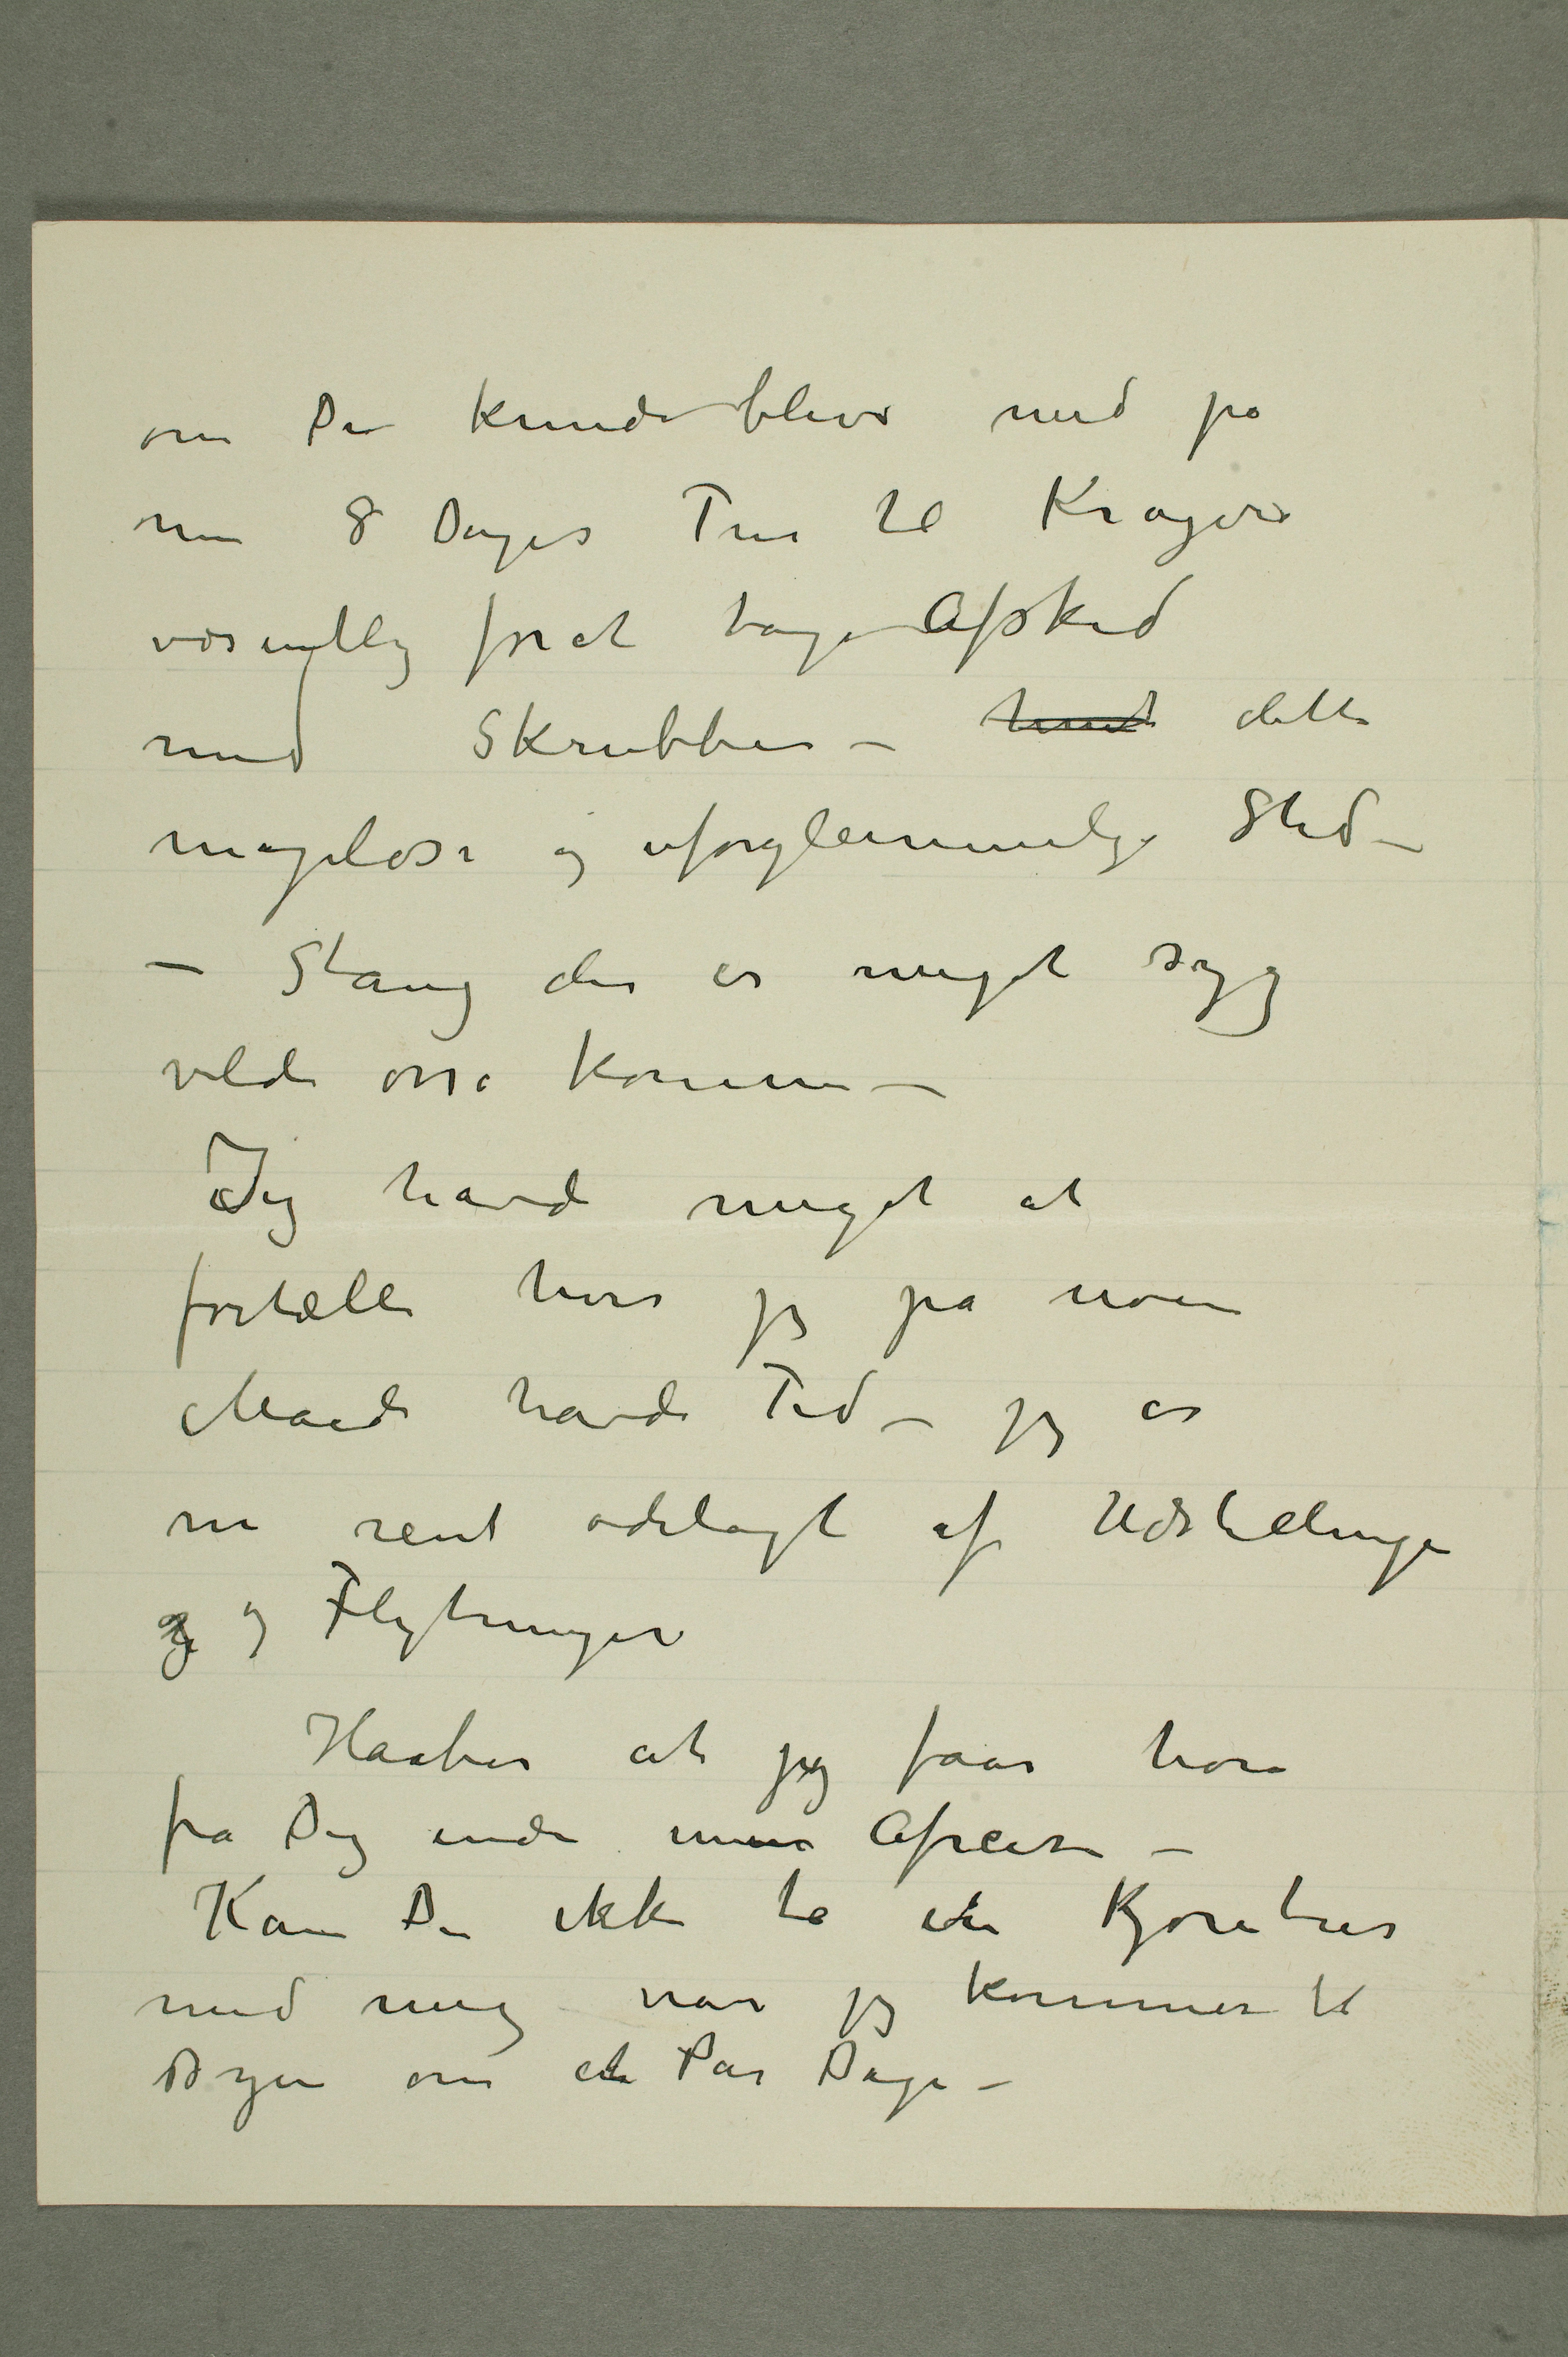 om Du kunde blive med på
min 8 Dages Tur til Kragerø
væsentlig forat tage Afsked
med Skrubben – dette
mageløse og uforglemmelige Sted –
– Stang der er meget syg
vilde osså komme –
Jeg havde meget at
fortælle hvis jeg på noen
Maade havde Tid – jeg er
nu rent ødelagt af Udstillinger
og Flytninger
Haaber at jeg faar høre
fra Dig inden min Afreise –
Kan Du ikke ta en Kjøretur
med mig når jeg kommer til
Byen om et Par Dage –